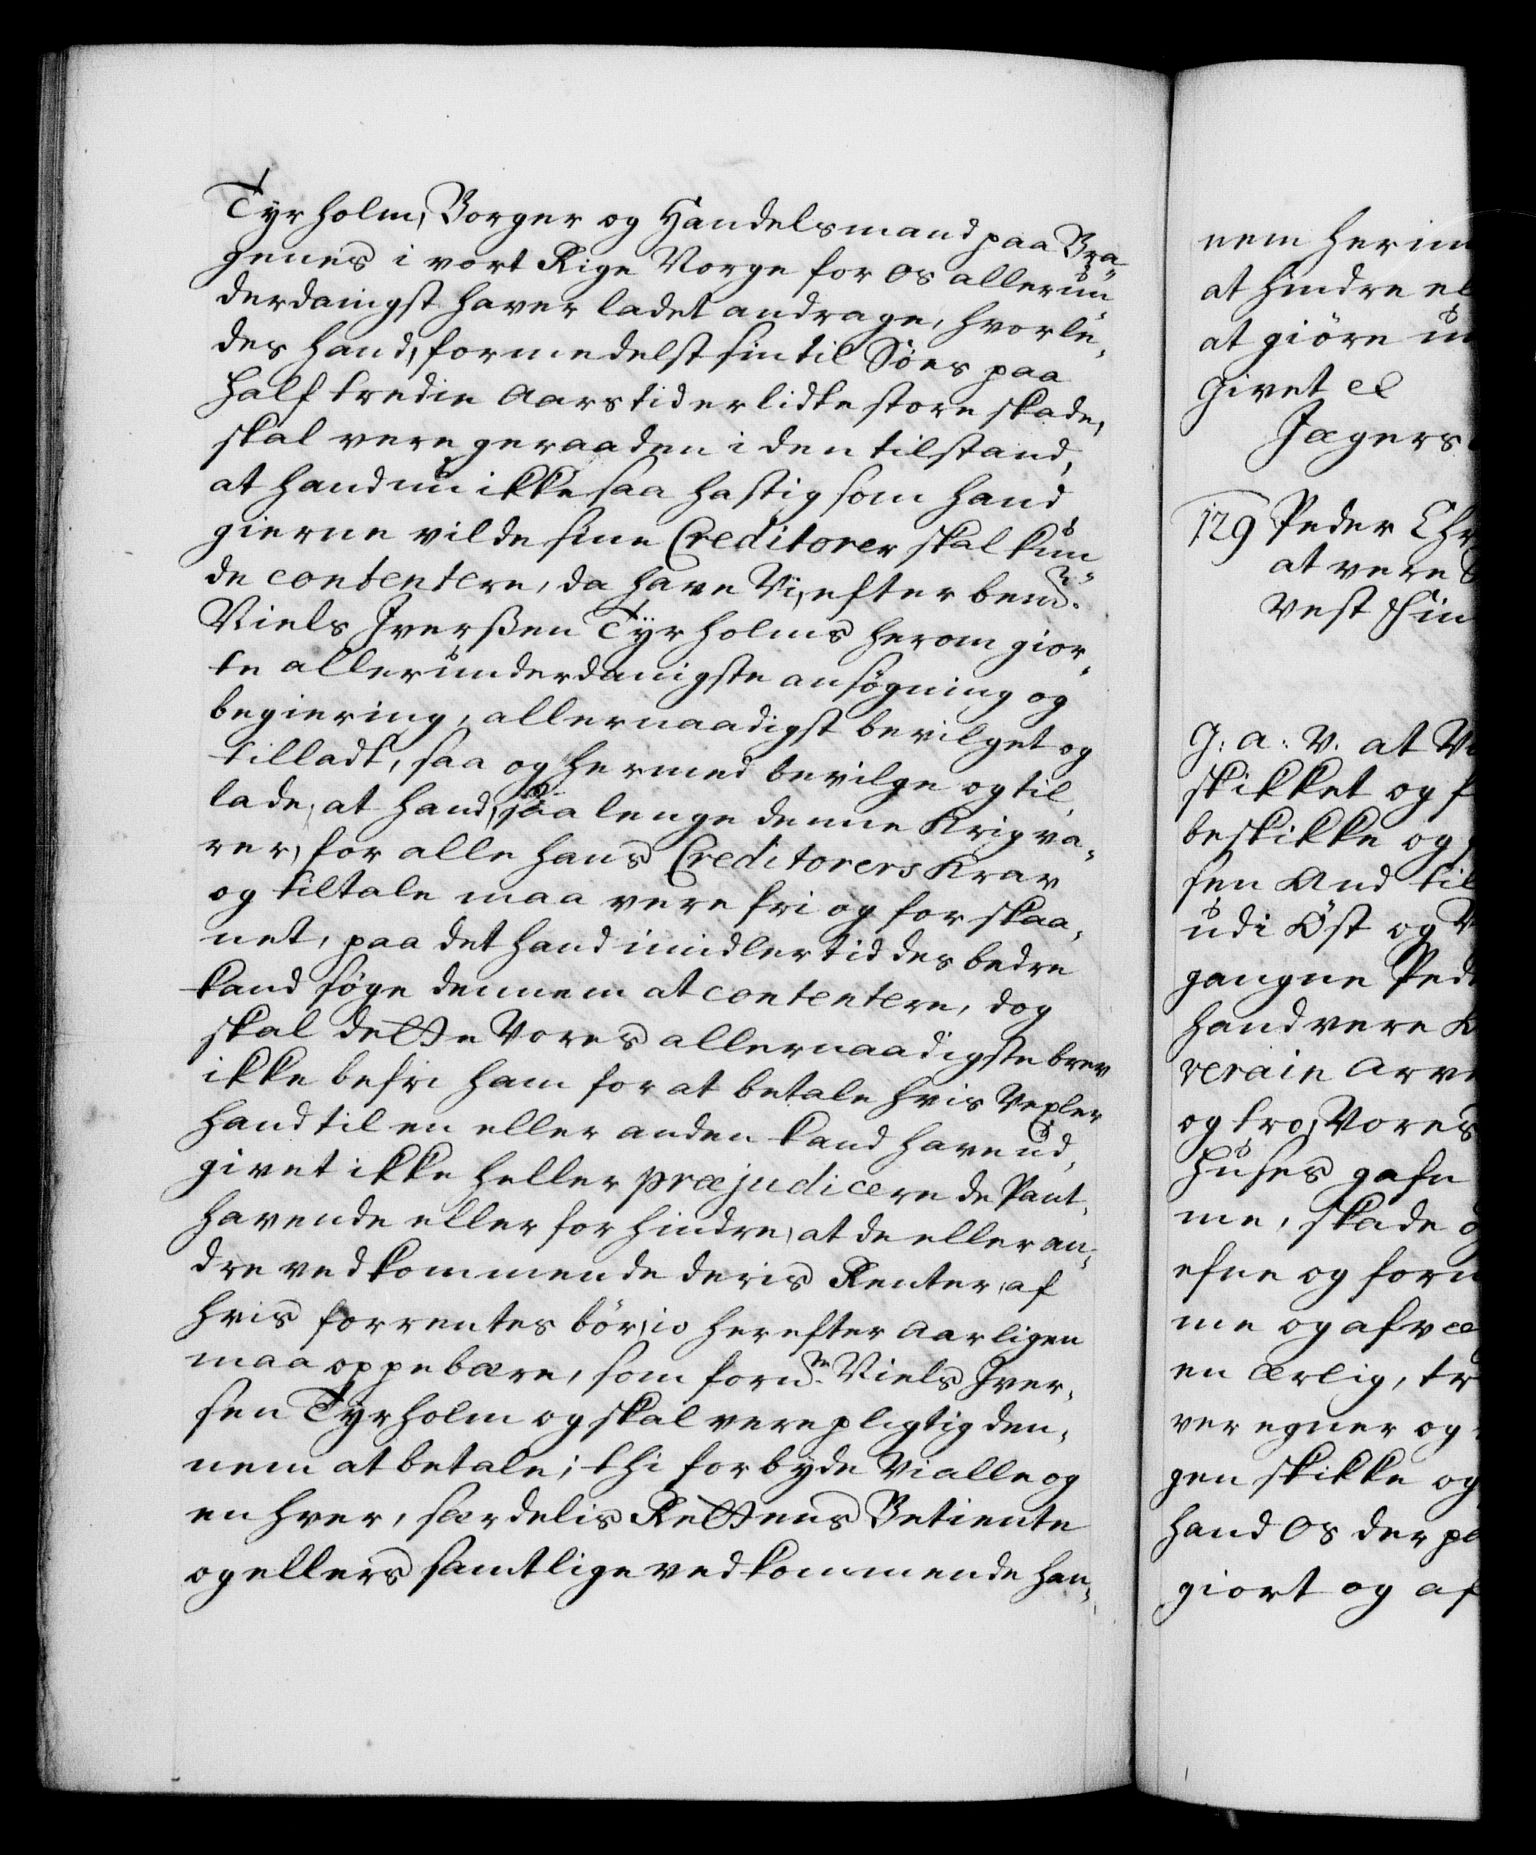 Tyrholm, Borger og Handelsmand paa Bra-
genes i vort Rige Norge for os allerun-
derdanigst haver ladet andrage, hvorle-
des hand, formedelst sin til Söes paa
half tredie Aars tid er lidte store skade,
skal vere geraaden i den tilstand,
at hand nu ikke saa hastig som hand
gierne vilde sine Creditorer skal kun-
de contentere, da have Vi, efter bemte.
Niels Iverßen Tyrholms herom gior-
te allerunderdanigste ansøgning og
begiering, allernaadigst bevilget og
tilladt, saa og hermed bevilge og til-
lade, at hand, saa lenge denne Krig va-
rer, for alle hans Creditorers Krav
og tiltale maa vere fri og forskaa-
net, paa det hand imidlertid des bedre
kand søge dennem at contentere, dog
skal dette Vores allernaadigste brev
ikke befri ham for at betale hvis Vexler
hand til en eller anden kand have ud-
givet ikke heller præjudicere de Pant-
havende eller forhindre, at de eller an-
dre vedkommende deris Renter, af
hvis forrentes bör, io herefter Aarligen
maa oppebære, som fornte. Niels Iver-
sen Tyrholm og skal vere pligtig den-
nem at betale; thi forbyde Vi alle og
en hver, særdelis Rettens Betiente
og ellers samtlige vedkommende han-
nem herim
at hindre el
at giöre
givet &c
Jægers
129 Peder Chr
at vere
Vest
J: a: V. at Vi
skikket og f
beskikke og
sen And til
udi Öst og V
gangne Ped
hand vere
verain Arve
og tro, Vores
Huses gafn
me, skade
efne og form
me og afvæ
en ærlig, tr
ver egner og
gen skikke og
hand os der
giort og af